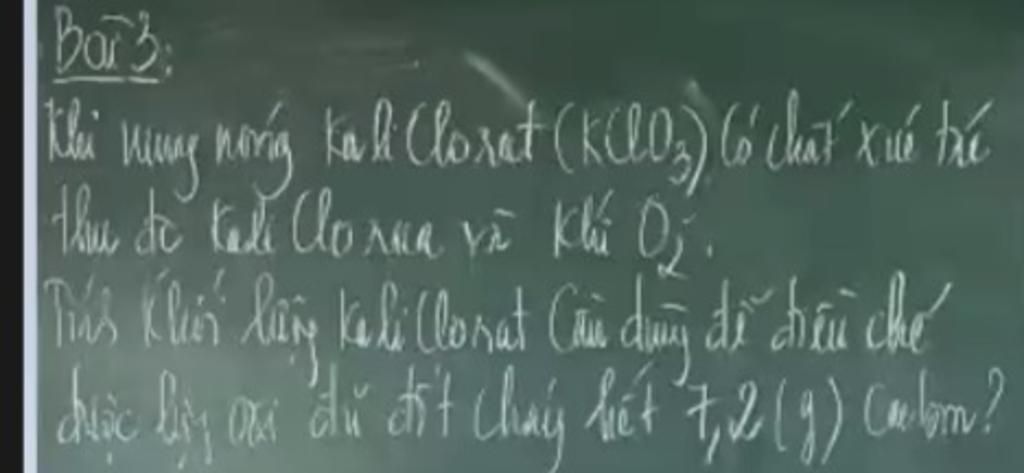 Bài 3:
Khi nung nóng Kali Clorat (KClO3) Có chất xúc tác
thu đc Kali Clorua và khí O2.
Tính Khối lượng Kali Clorat Cần dùng để điều chế
được lượng oxi đủ đốt cháy hết 7,2 (g) Cacbon?